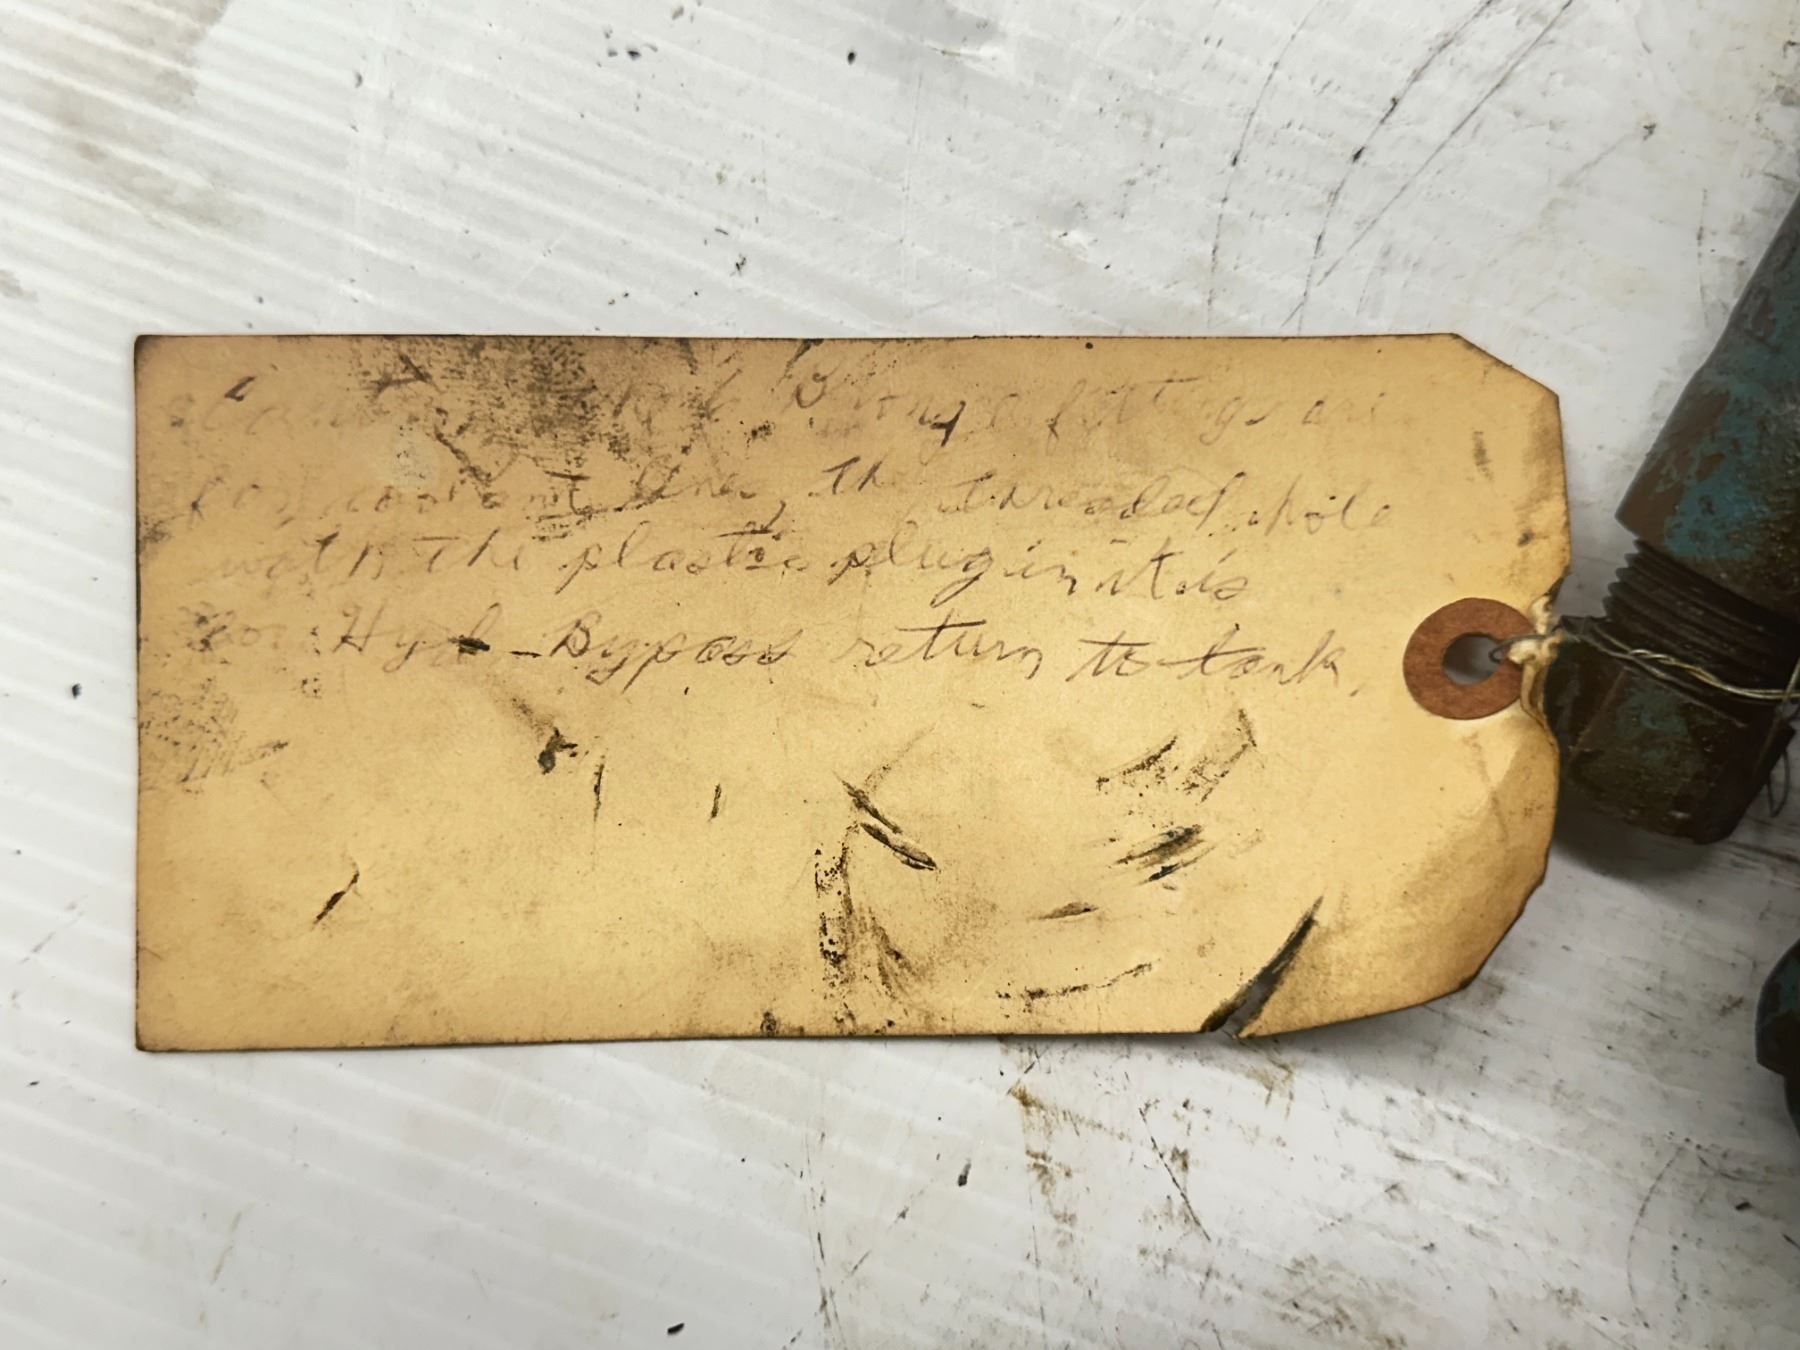 fittings are
for coolant line, the threaded hole
with the plastic plug in it is
for Hyd - Bypass return to tank.